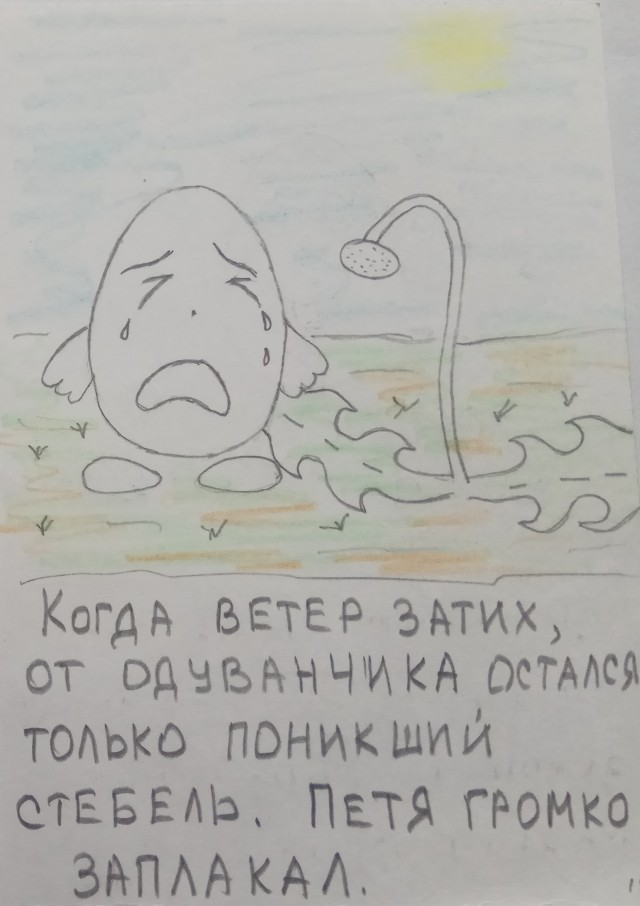 Когда ветер затих,
от одуванчика остался
только поникший
стебель. Петя громко
заплакал.